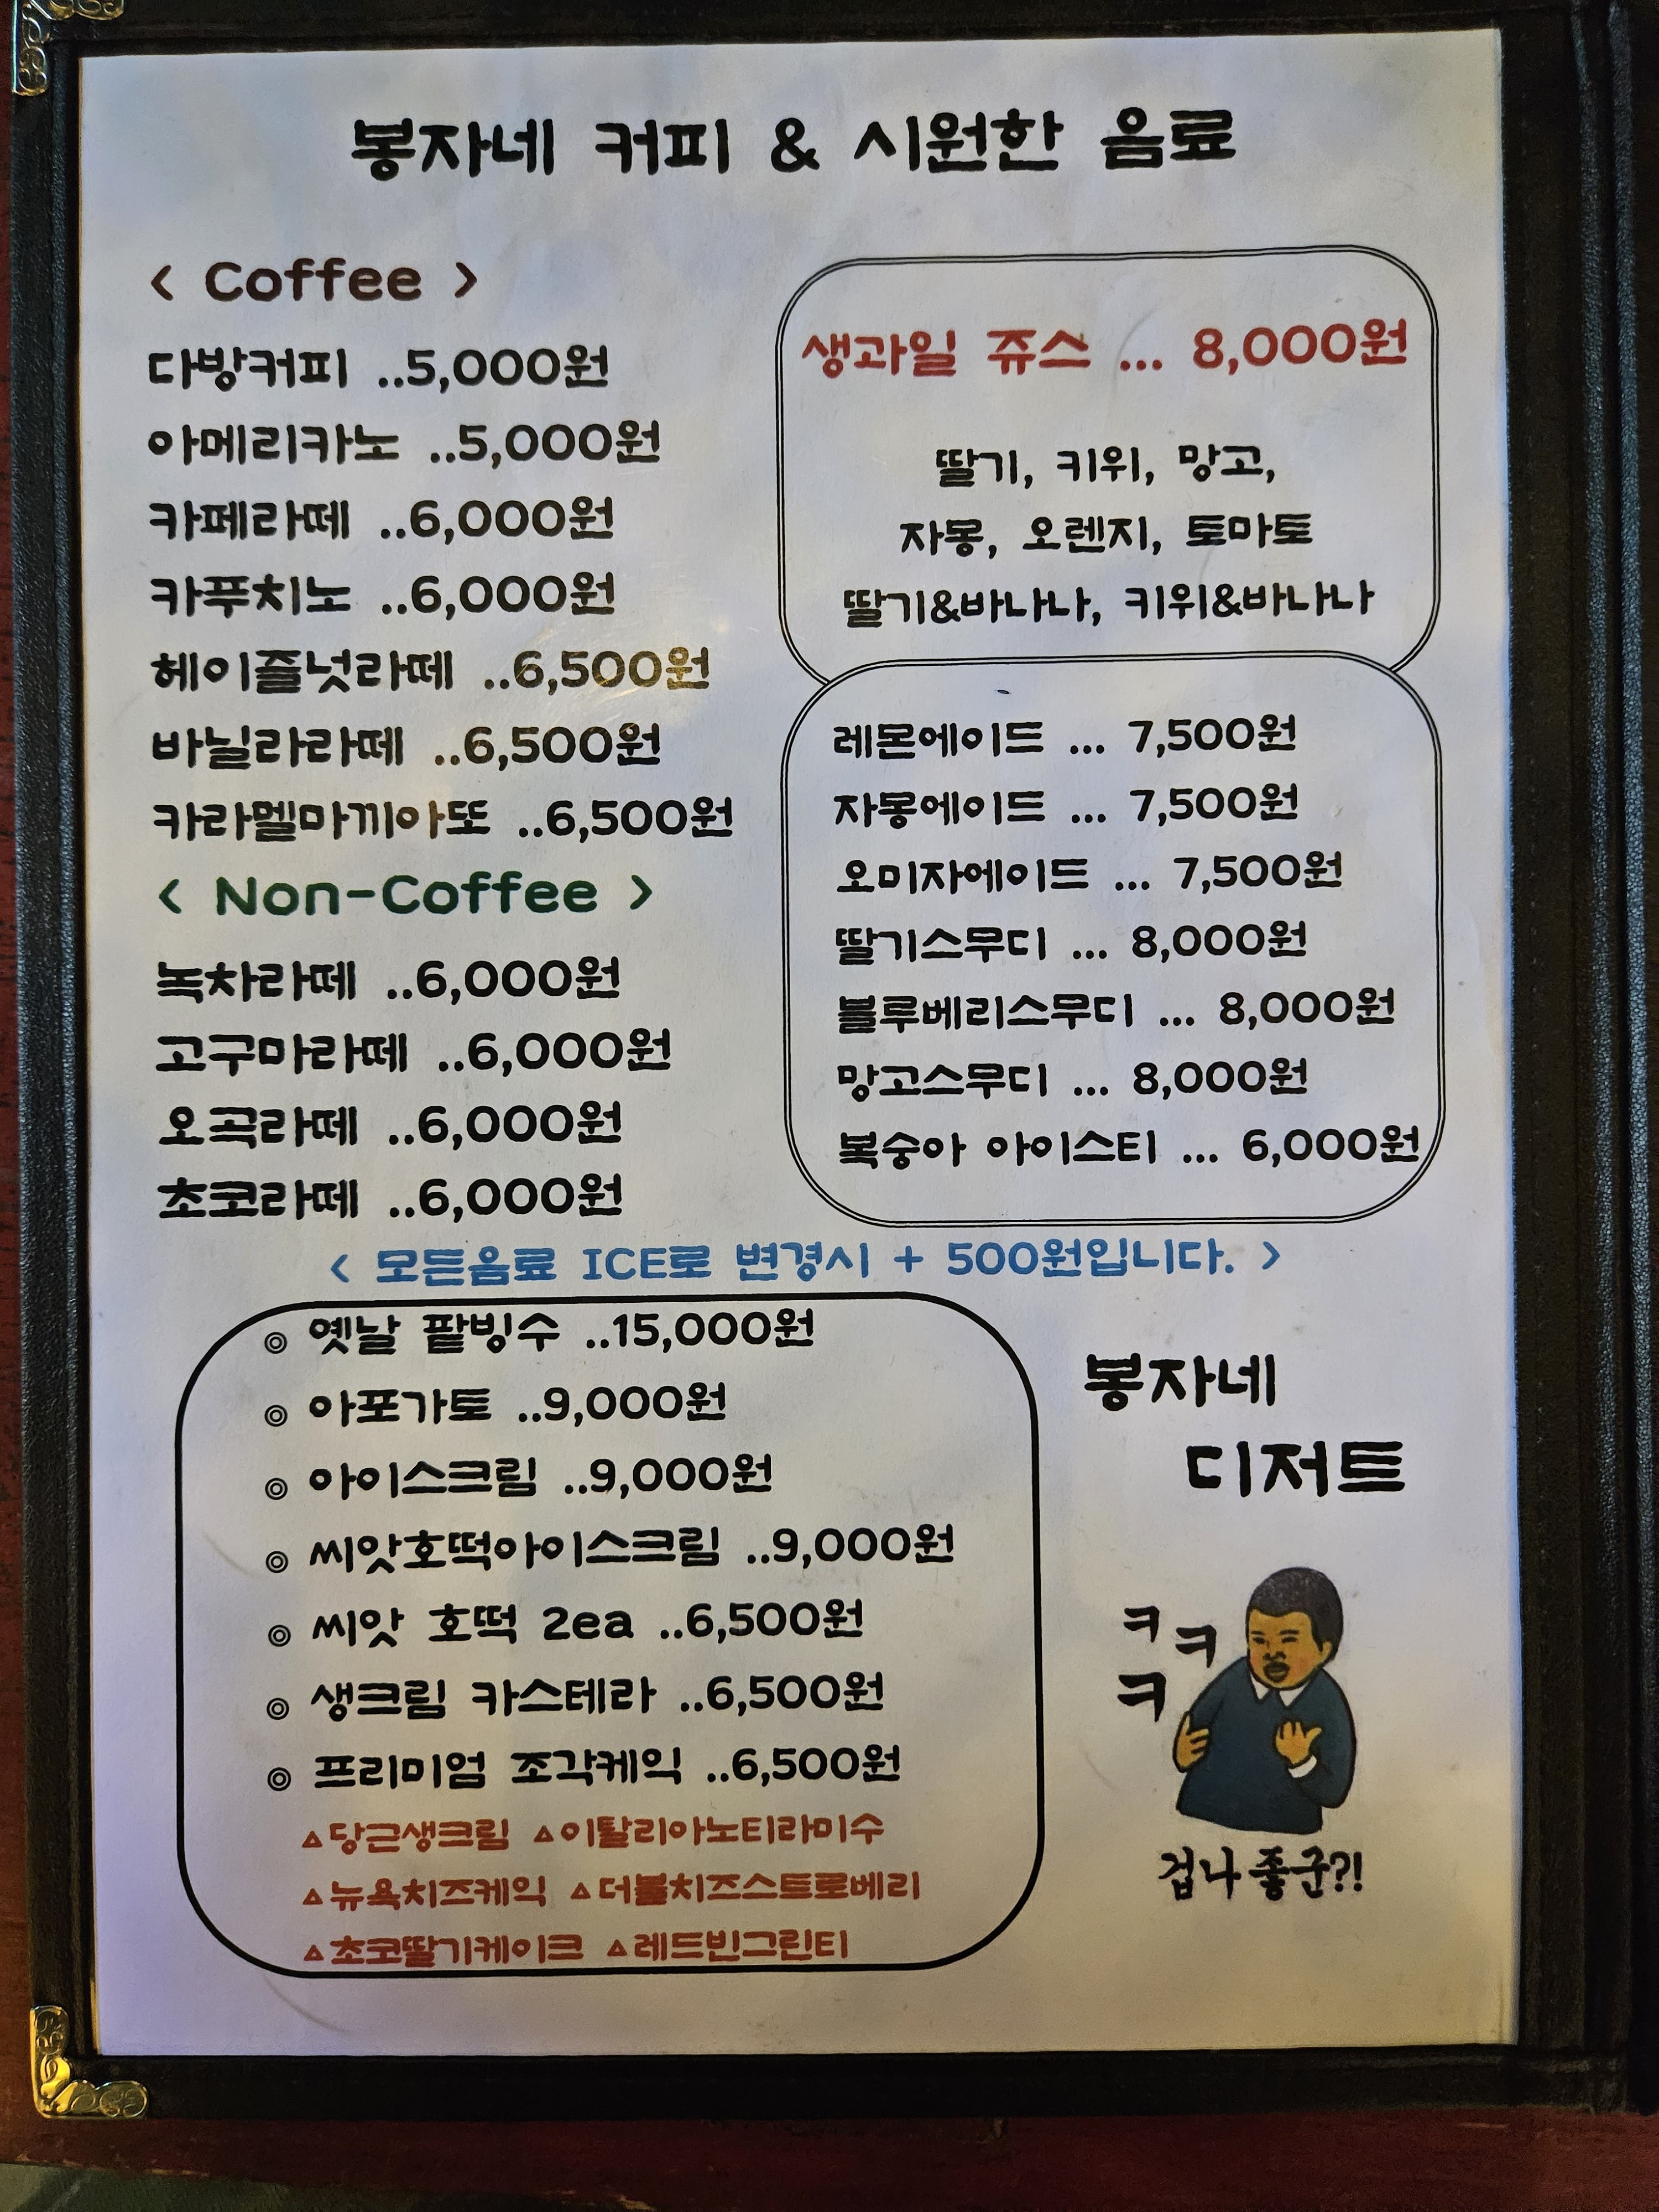 봉자네 커피 & 시원한 음료
< Coffee >
다방커피 ..5,000원
아메리카노 ..5,000원
카페라떼 ..6,000원
카푸치노 ..6,000원
헤이즐넛라떼 ..6,500원
바닐라라떼 ..6,500원
카라멜마끼아또 ..6,500원
< Non-Coffee >
녹차라떼 ..6,000원
고구마라떼 ..6,000원
오곡라떼 ..6,000원
초코라떼 ..6,000원
생과일 쥬스 ... 8,000원
딸기, 키위, 망고,
자몽, 오렌지, 토마토
딸기&바나나, 키위&바나나
레몬에이드 ... 7,500원
자몽에이드 ... 7,500원
오미자에이드 ... 7,500원
딸기스무디 ... 8,000원
블루베리스무디 ... 8,000원
망고스무디 ... 8,000원
복숭아 아이스티 ... 6,000원
< 모든음료 ICE로 변경시 + 500원입니다. >
◎ 옛날 팥빙수 ..15,000원
◎ 아포가토 ..9,000원
◎ 아이스크림 ..9,000원
◎ 씨앗호떡아이스크림 ..9,000원
◎ 씨앗 호떡 2ea ..6,500원
◎ 생크림 카스테라 ..6,500원
◎ 프리미엄 조각케익 ..6,500원
△당근생크림 △이탈리아노티라미수
△뉴욕치즈케익 △더블치즈스트로베리
△초코딸기케이크 △레드빈그린티
봉자네
디저트
ㅋ
ㅋ
ㅋ
겁나 좋군?!